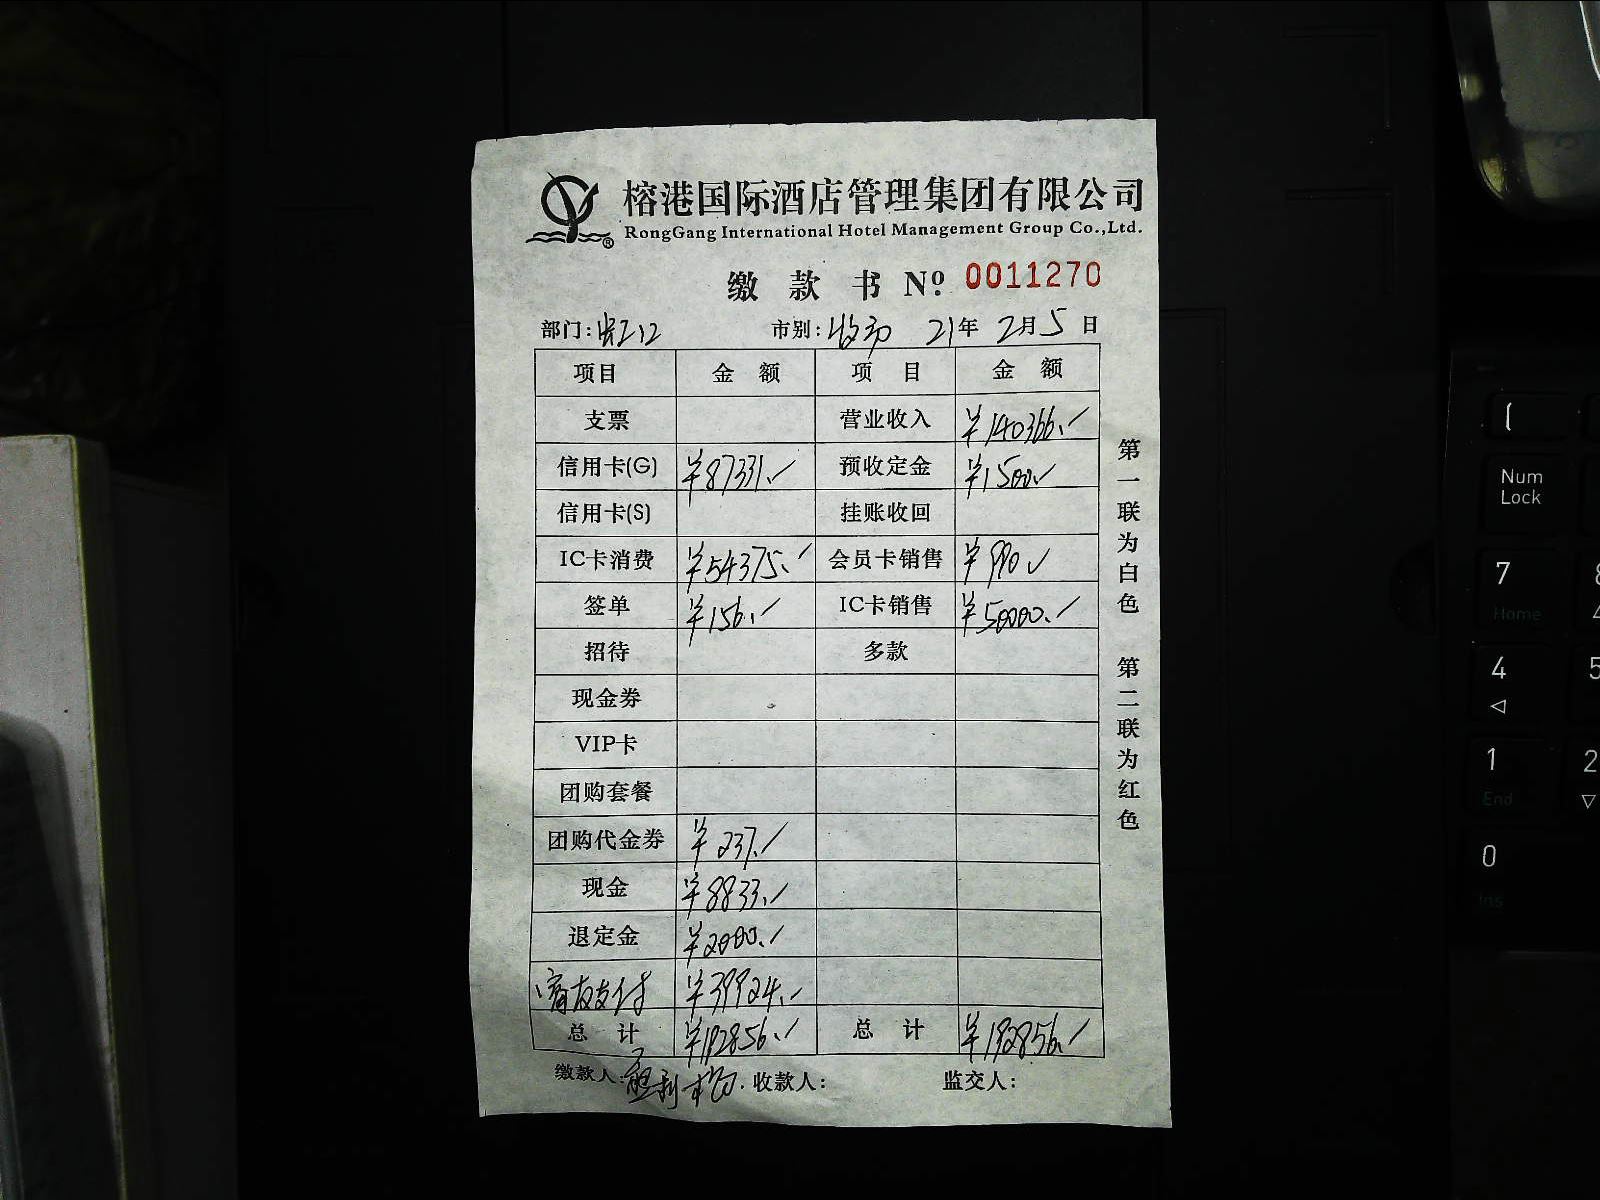 榕港国际酒店管理集团有限公司
RongGang International Hotel Management Group Co.,Ltd.
缴款书 Nº 0011270
部门: 市别: 21年 2月5日
项目 金额 项目 金额
支票 营业收入 ¥140366.
信用卡(G) ¥87331. 预收定金 ¥1500.
信用卡(S) 挂账收回
IC卡消费 ¥54375. 会员卡销售 ¥990
签单 ¥156. IC卡销售 ¥50000.
招待 多款
现金券
VIP卡
团购套餐
团购代金券 ¥237.
现金 ¥8833.
退定金 ¥2000.
富友支付 ¥39924.
总计 ¥192856. 总计 ¥192856.
缴款人: 收款人: 监交人:
第一联为白色 第二联为红色
Num
Lock
7
Home
4
5
1
2
End
0
Ins